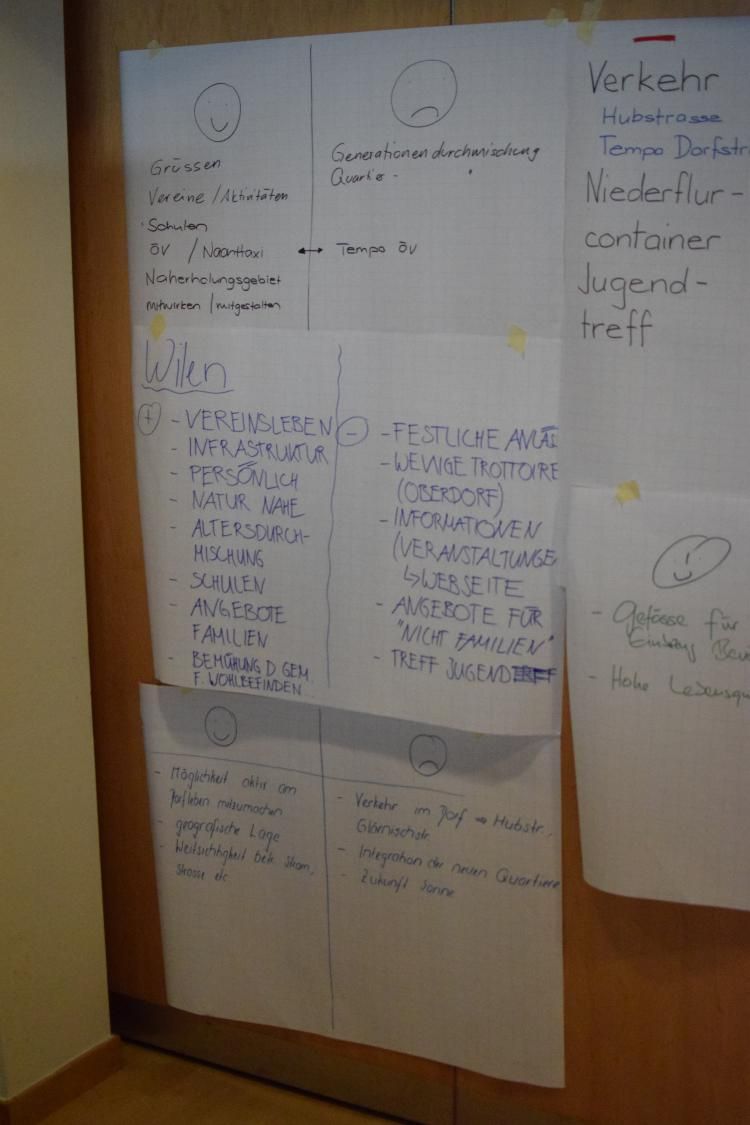 Grüssen
Vereine / Aktivitäten
Schulen
ÖV / Nachttaxi ↔ Tempo ÖV
Naherholungsgebiet
mitwirken / mitgestalten
Generationendurchmischung
Quartier -
Wilen
+
- VEREINSLEBEN
- INFRASTRUKTUR
- PERSÖNLICH
- NATUR NAHE
- ALTERSDURCH-
MISCHUNG
- SCHULEN
- ANGEBOTE
FAMILIEN
- BEMÜHUNG D. GEM.
F. WOHLBEFINDEN
-
- FESTLICHE ANLÄS
- WENIGE TROTTOIRE
(OBERDORF)
- INFORMATIONEN
(VERANSTALTUNGE
↳ WEBSEITE
- ANGEBOTE FÜR
"NICHT FAMILIEN"
- TREFF JUGEND
- Möglichkeit aktiv am
Dorfleben mitzumachen
- geografische Lage
- Weitsichtigkeit betr. Strom,
Strasse etc
- Verkehr im Dorf → Hubstr.,
Glärnischstr.
- Integration der neuen Quartiere
- Zukunft Sonne
Verkehr
Hubstrasse
Tempo Dorfstr
Niederflur-
container
Jugend-
treff
- Gefässe für
- Hohe Lebensqu